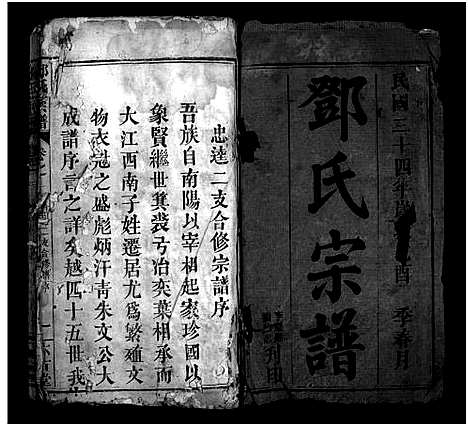 民國三十四年歲
酉 季春月
鄧氏宗譜
刊印
忠逵二支合修宗譜序
吾族自南陽以宰相起家珍國以
象賢繼世箕裘弓冶奕葉相承而
大江西南子姓遷居尤爲繁殖文
物衣冠之盛彪炳汗青朱文公大
成譜序言之詳矣越四十五世我